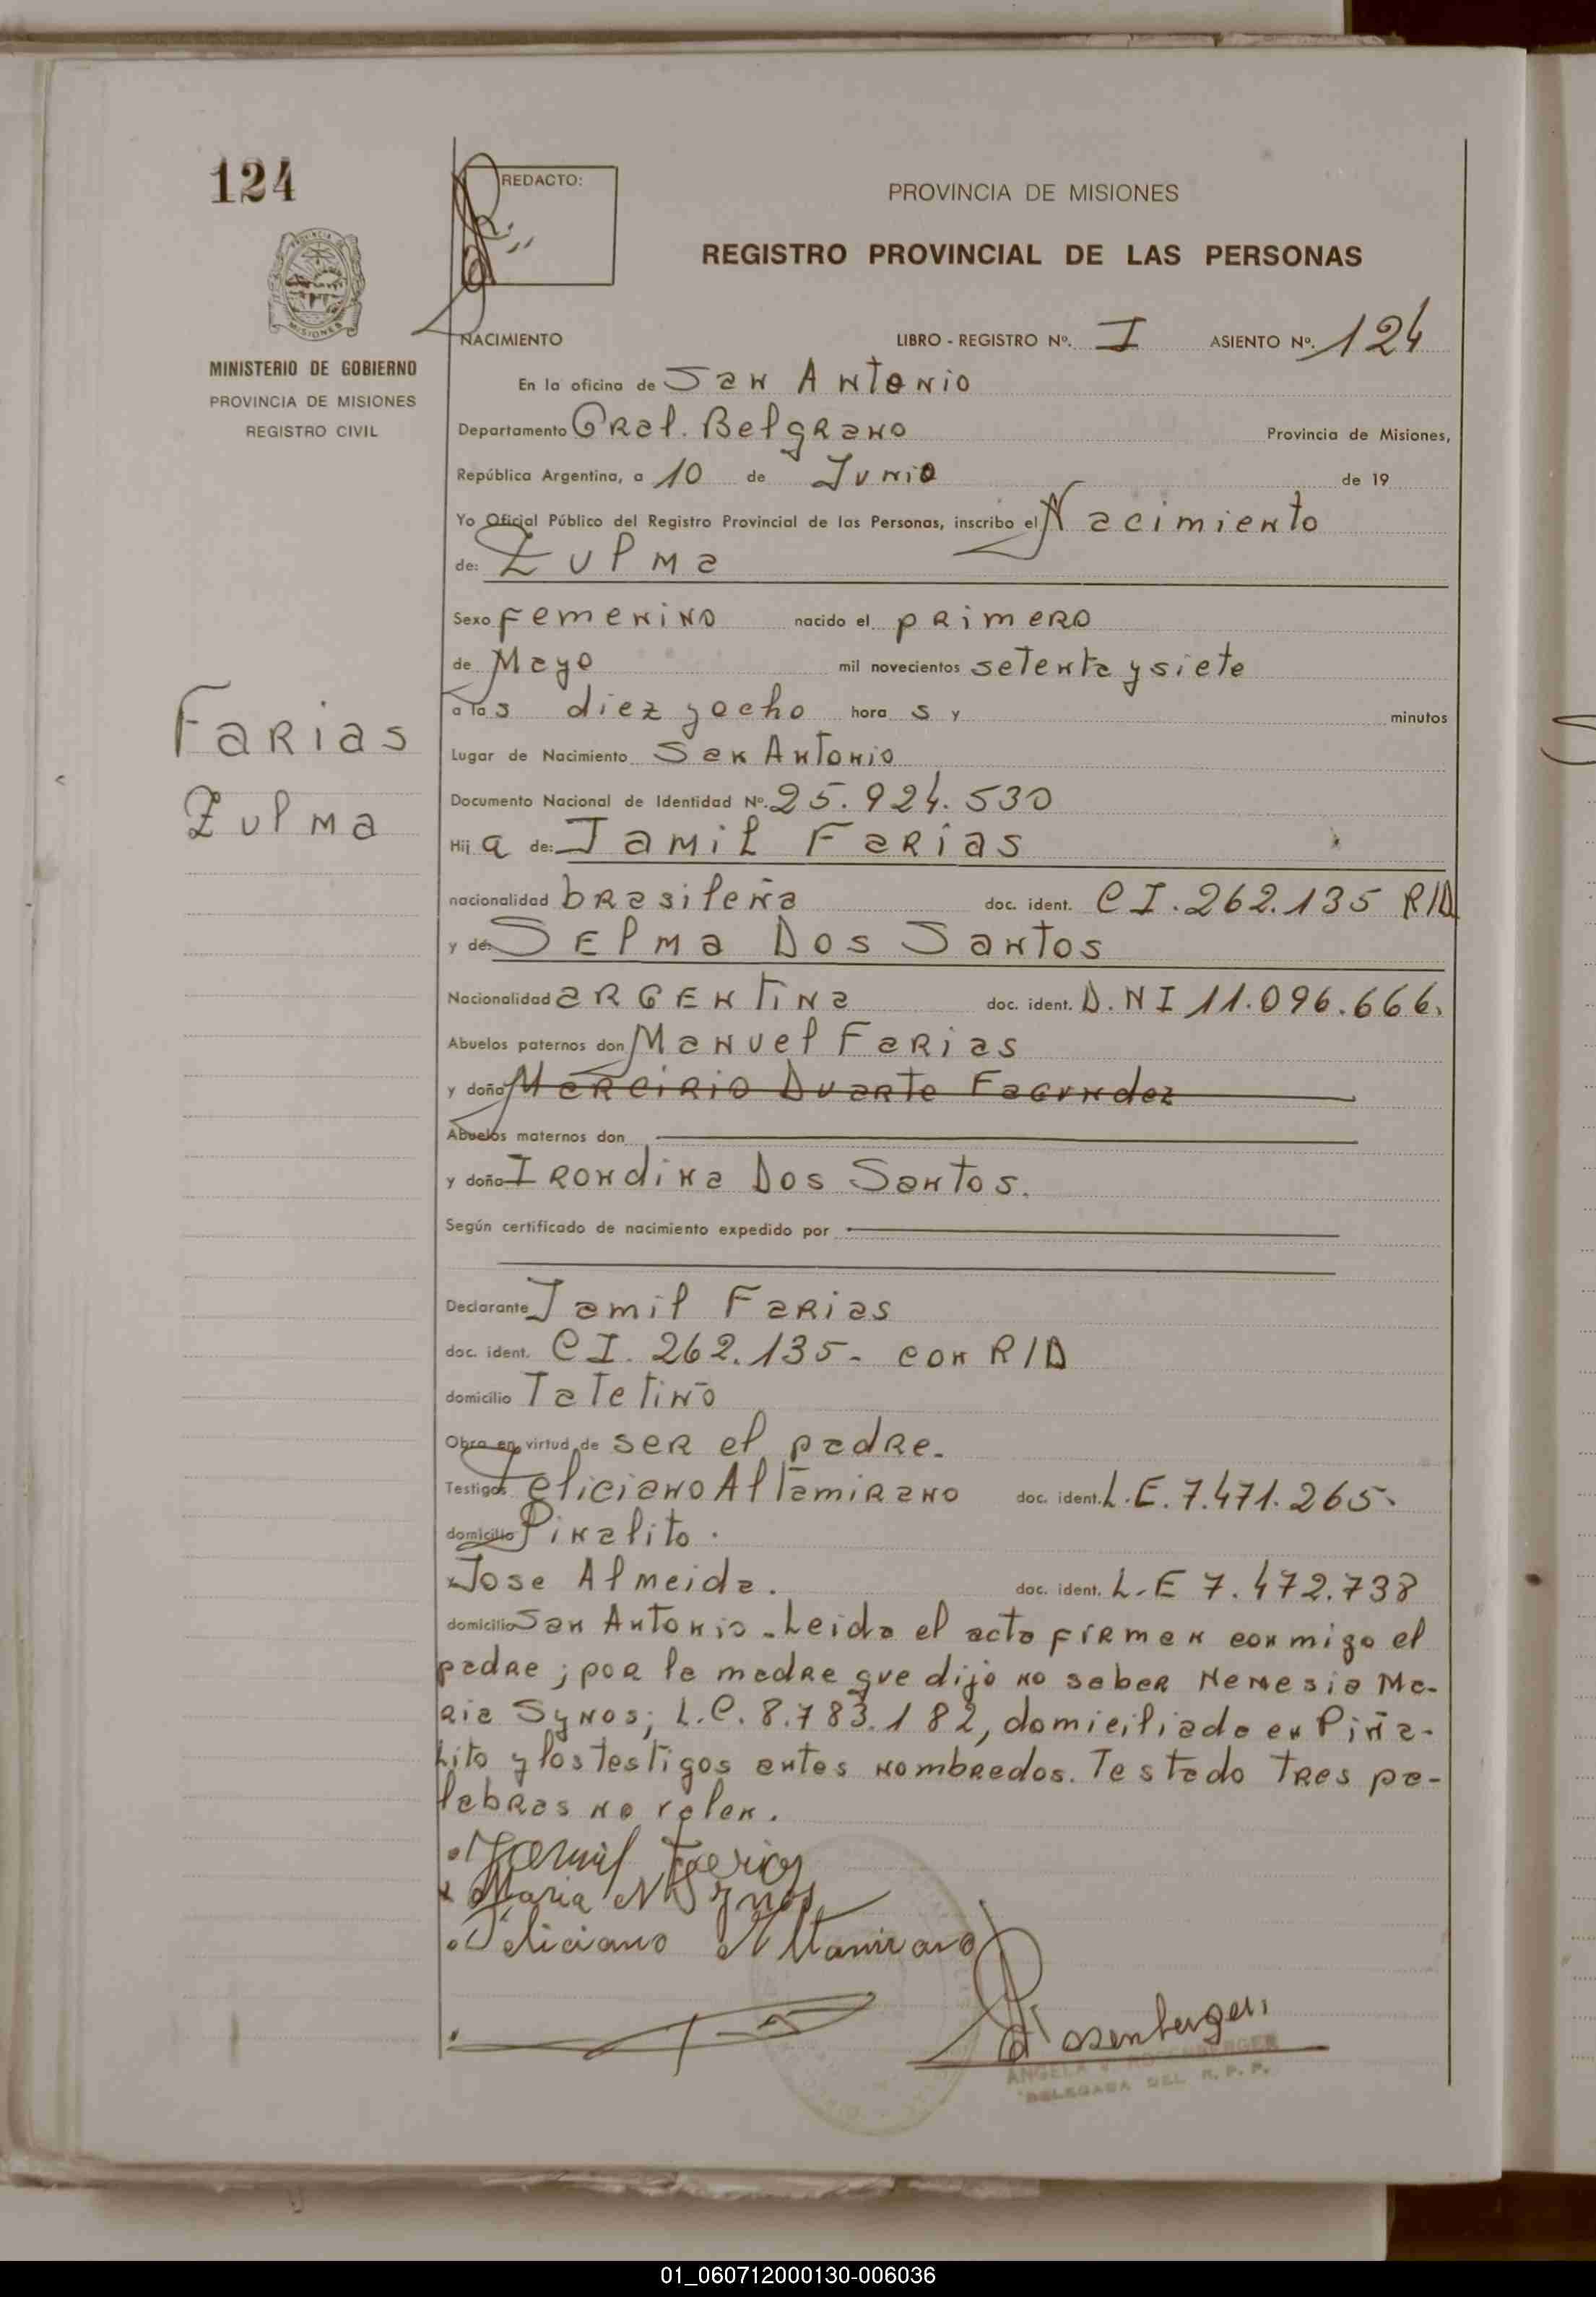 124
REDACTO:
PROVINCIA DE MISIONES
REGISTRO PROVINCIAL DE LAS PERSONAS
PROVINCIA DE MISIONES
MINISTERIO DE GOBIERNO
PROVINCIA DE MISIONES
REGISTRO CIVIL
NACIMIENTO LIBRO - REGISTRO Nº. I ASIENTO Nº. 124
En la oficina de San Antonio
Departamento Gral. Belgrano Provincia de Misiones,
República Argentina, a 10 de Junio de 19
Yo Oficial Público del Registro Provincial de las Personas, inscribo el Nacimiento
de: Zulma
Sexo femenino nacido el primero
de Mayo mil novecientos setenta y siete
a las diez y ocho hora s y minutos
Farias
Lugar de Nacimiento San Antonio
Documento Nacional de Identidad Nº. 25.924.530
Zulma
Hij a de: Jamil Farias
nacionalidad brasileña doc. ident. CI.262.135 R/D
y de: Selma Dos Santos
Nacionalidad argentina doc. ident. D.NI 11.096.666.
Abuelos paternos don Manuel Farias
y doña Marcirio Duarte Facundez
Abuelos maternos don
y doña Irondina Dos Santos.
Según certificado de nacimiento expedido por
Declarante Jamil Farias
doc. ident. CI. 262.135- con R/D
domicilio Tatetiño
Obra en virtud de ser el padre.
Testigos Feliciano Altamirano doc. ident. L.E. 7.471.265.
domicilio Piñalito.
Jose Almeida. doc. ident. L.E 7.472.738
domicilio San Antonio. Leida el acta firman conmigo el
padre; por la madre que dijo no saber Nemesia Ma-
ria Synos; L.C. 8.783.182, domiciliada en Piña-
lito y los testigos antes nombrados. Testado tres pa-
labras no valen.
Jamil Farias
Maria N Synos
Feliciano Altamirano
Rosenberger
ANGELA V. ROSENBERGER
DELEGADA DEL R. P. P.
01_060712000130-006036